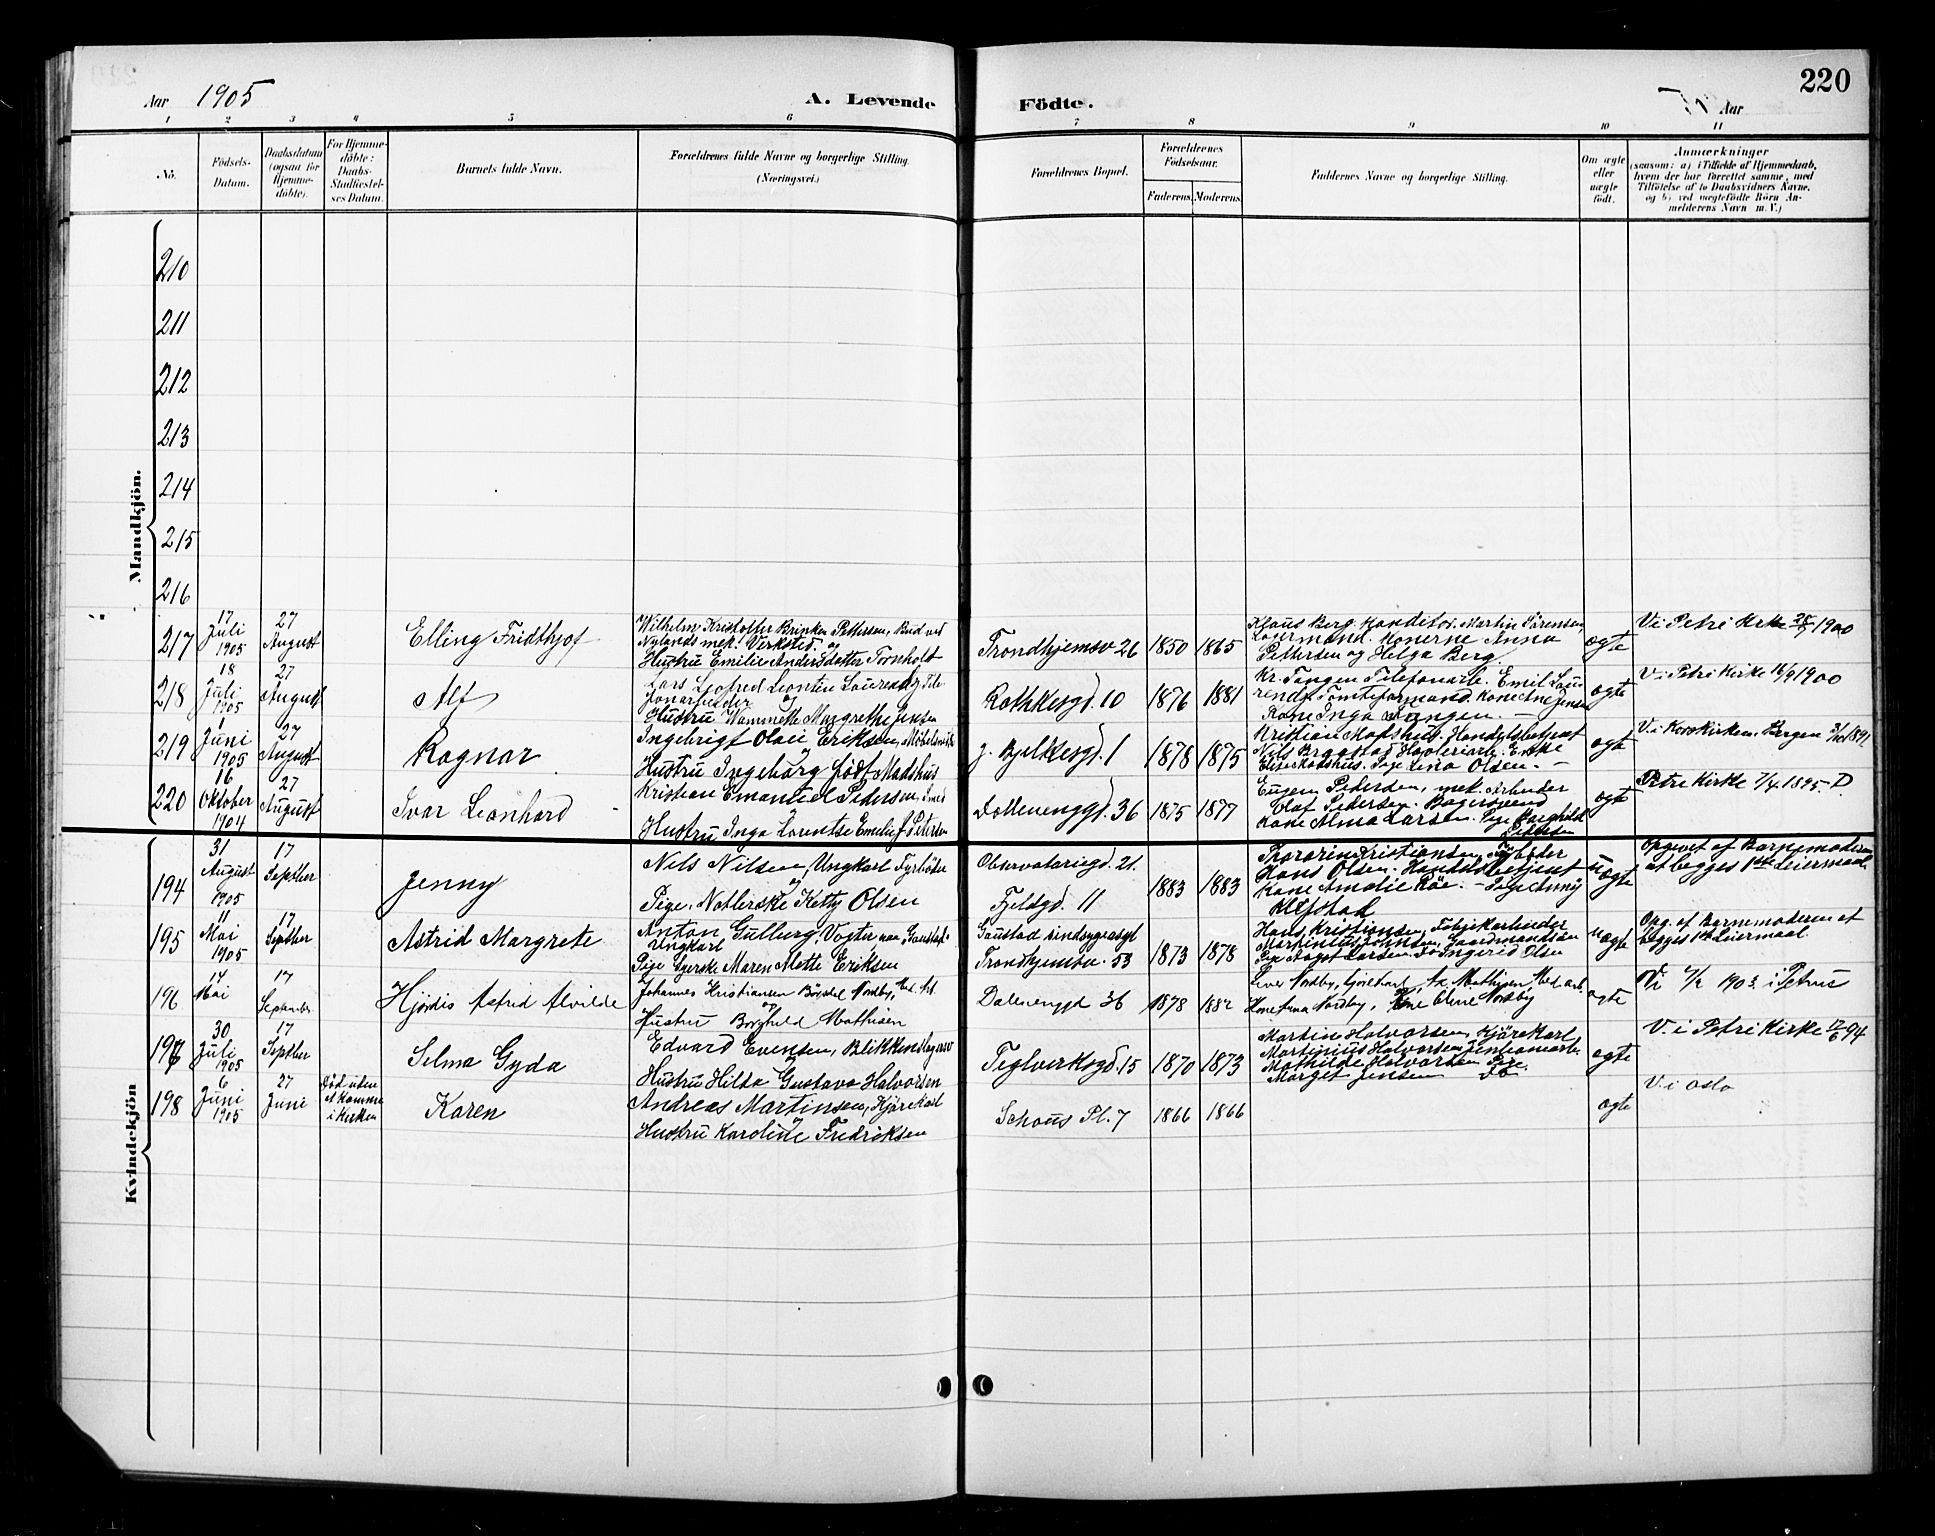 220
Aar 1905
A. Levende
Födte.
Aar
1 2 3 4 5 6 7 8 9 10 11
No.
Födsels-
Datum.
Daabsdatum
(ogsaa for
Hjemme-
döbte).
For Hjemme-
döbte:
Daabs-
Stadfæstel-
ses Datum.
Barnets fulde Navn.
Forældrenes fulde Navne og borgerlige Stilling.
(Næringsvei.)
Forældrenes Bopæl.
Forældrenes
Födselsaar.
Faderens. Moderens.
Faddernes Navne og borgerlige Stilling.
Om ægte
eller
uægte
födt.
Anmærkninger
(saasom: a) i Tilfælde af Hjemmedaab,
hvem der har forrettet samme, med
Tilföielse af to Daabsvidners Navne,
og b) ved uægtefödte Börn An-
melderens Navn m. V.)
Mandkjön.
210
211
212
213
214
215
216
217
17
Juli
1905
27
August
Elling Fridthjof
Wilhelm Kristoffer Brinken Pettersen, Bud ved
Nylands mek. Verksted og
Hustru Emilie Andersdatter Tornholt
Trondhjemsv 26
1850 1865
Klaus Berg, Konditor. Martin Sörensen,
Lagermand. Konerne Anna
Pettersen og Helga Berg.
ægte
V. i Petri Kirke 1900
218
18
Juli
1905
27
August
Alf
Lars Leofred Leontin Laurendz
Hustru Wammette Margrethe Jensen
Rathkesgd. 10
1876 1881
Kr. Tangen Telefonarb. Emil Lau-
rendz Tomteformand. Kone Jensen
Kone Inga Tangen. —
ægte
V. i Petri Kirke 16/9 1900
219
1
Juni
1905
27
August
Ragnar
Ingebrigt Olai Eriksen,
Hustru Ingeborg født Madshus
J. Bjelkesgd. 1
1878 1875
Kristian Madshus. Handelsbetjent
Nils Braastad Høvleriarb. Enke
Elise Madshus. Pige Lina Olsen. —
ægte
V. i Korskirken, Bergen
220
16
Oktober
1904
27
August
Ivar Leonhard
Kristian Emanuel Pedersen, Smed
Hustru Inga Lorentse Emilie f. Petersen
Dalevenggd. 36
1875 1877
Eugen Pedersen, mek. Arbeider
Olaf Pedersen. Bagersvend
Kone Alma Larsen. Pige Borghild
Pettersen
ægte
Petri Kirke 7/4 1895. D.
Kvindekjön
194
31
August
1905
17
Septber
Jenny
Nils Nilsen, Ungkarl Fyrböder
og
Pige. Nobterske Ketty Olsen
Observatoriegd. 21.
Fjeldgd. 11
1883 1883
Thorarin Kristiansen, Fyrböder
Hans Olsen. Handelsbetjent
Kone Amalie Röe. – Pige Jenny
Klefstad
uægte
Opgivet af Barnemoderen
at begges 1ste Leiermaal
195
11
Mai
1905
17
Septber
Astrid Margrete
Anton Gulberg, Vogter paa Gaustad
Ungkarl
Pige Syerske Maren Mette Eriksen
Gaustad Sindsygeasyl
Trondhjemsv. 53
1873 1878
Hans Kristiansen, Fabrikarbeider
Martinius Johnsen, Gaardmandssön
Pige Aagot Larsen. Do Ingerid Olsen
uægte
Opg. af Barnemoderen at
begges 1ste Leiermaal.
196
14
Mai
17
September
Hjördis Astrid Alvilde
Johannes Kristiansen Börstad Nordby,
og
Hustru Borghild Mathisen
Dalevengd 36
1878 1882
Iver Nordby, Kjörekarl,
Kone Anna Nordby, Kone Oline Nordby
ægte
Vi 1903 i Petrus
197
30
Juli
1905
17
Septber
Selma Gyda
Edvard Evensen, Blikkenslagersv
Hustru Hilda Gustava Halvorsen
Teglverksgd. 15
1870 1873
Martin Halvorsen, Kjörekarl
Martinius Halvorsen,
Mathilde Halvorsen Pige
Marget Jensen Do
ægte
V. i Petri Kirke 94
198
6
Juni
1905
27
Juni
Död uden
at komme
i Kirken
Karen
Andreas Martinsen, Kjörekarl
og
Hustru Karoline Fredriksen
Schous Pl. 7
1866 1866
ægte
V. i Oslo